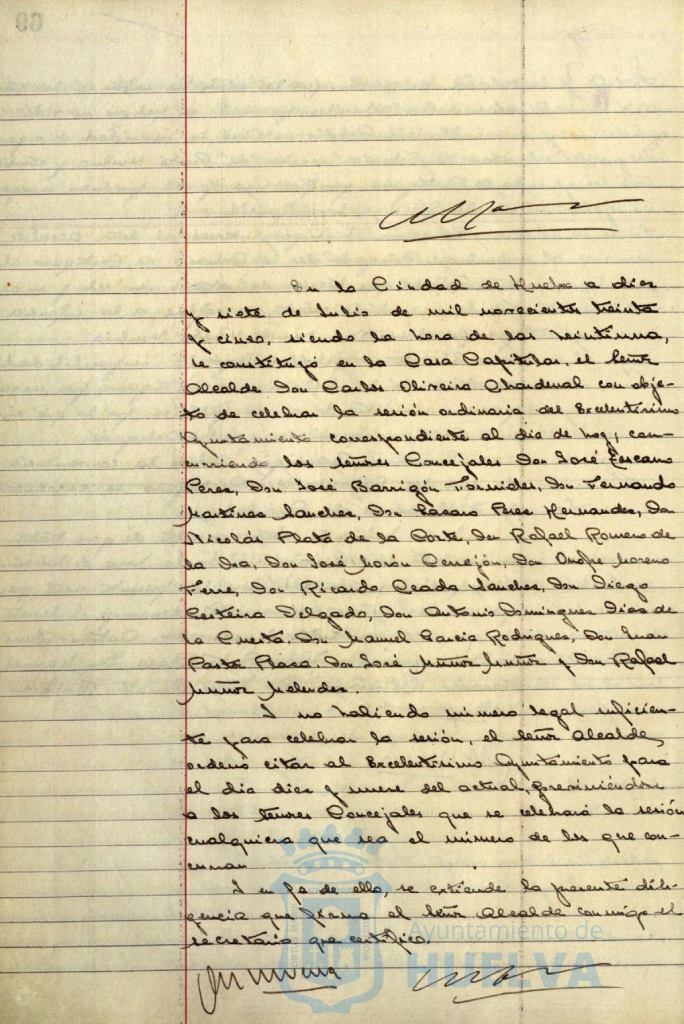 En la Ciudad de Huelva a diez
y siete de Julio de mil novecientos treinta
y cinco, siendo la hora de las veintiuna,
se constituyó en la Casa Capitular, el Señor
Alcalde Don Carlos Oliveira Chardenal con obje-
to de celebrar la sesión ordinaria del Excelentísimo
Ayuntamiento correspondiente al día de hoy, con-
curriendo los señores Concejales Don José Lescano
Perez, Don José Barrigón Fornieles, Don Fernando
Martinez Sanchez, Don Lázaro Perez Hernandez, Don
Nicolás Plata de la Corte, Don Rafael Romero de
la Osa, Don José Morón Cerrejón, Don Onofre Moreno
Ferre, Don Ricardo Ceada Sanchez, Don Diego
Certeira Delgado, Don Antonio Dominguez Dias de
la Cuesta, Don Manuel Garcia Rodriguez, Don Juan
Plaza, Don José Muñoz Muñoz y Don Rafael
Muñoz Melendez.
Y no habiendo número legal suficien-
te para celebrar la sesión, el Señor Alcalde,
ordenó citar al Excelentísimo Ayuntamiento para
el día diez y nueve del actual, previniéndose
a los señores Concejales que se celebrará la sesión
cualquiera que sea el número de los que con-
curran
Y en fe de ello, se extiende la presente dili-
gencia que firma el Señor Alcalde conmigo el
secretario que certifico.
Ayuntamiento de
HUELVA